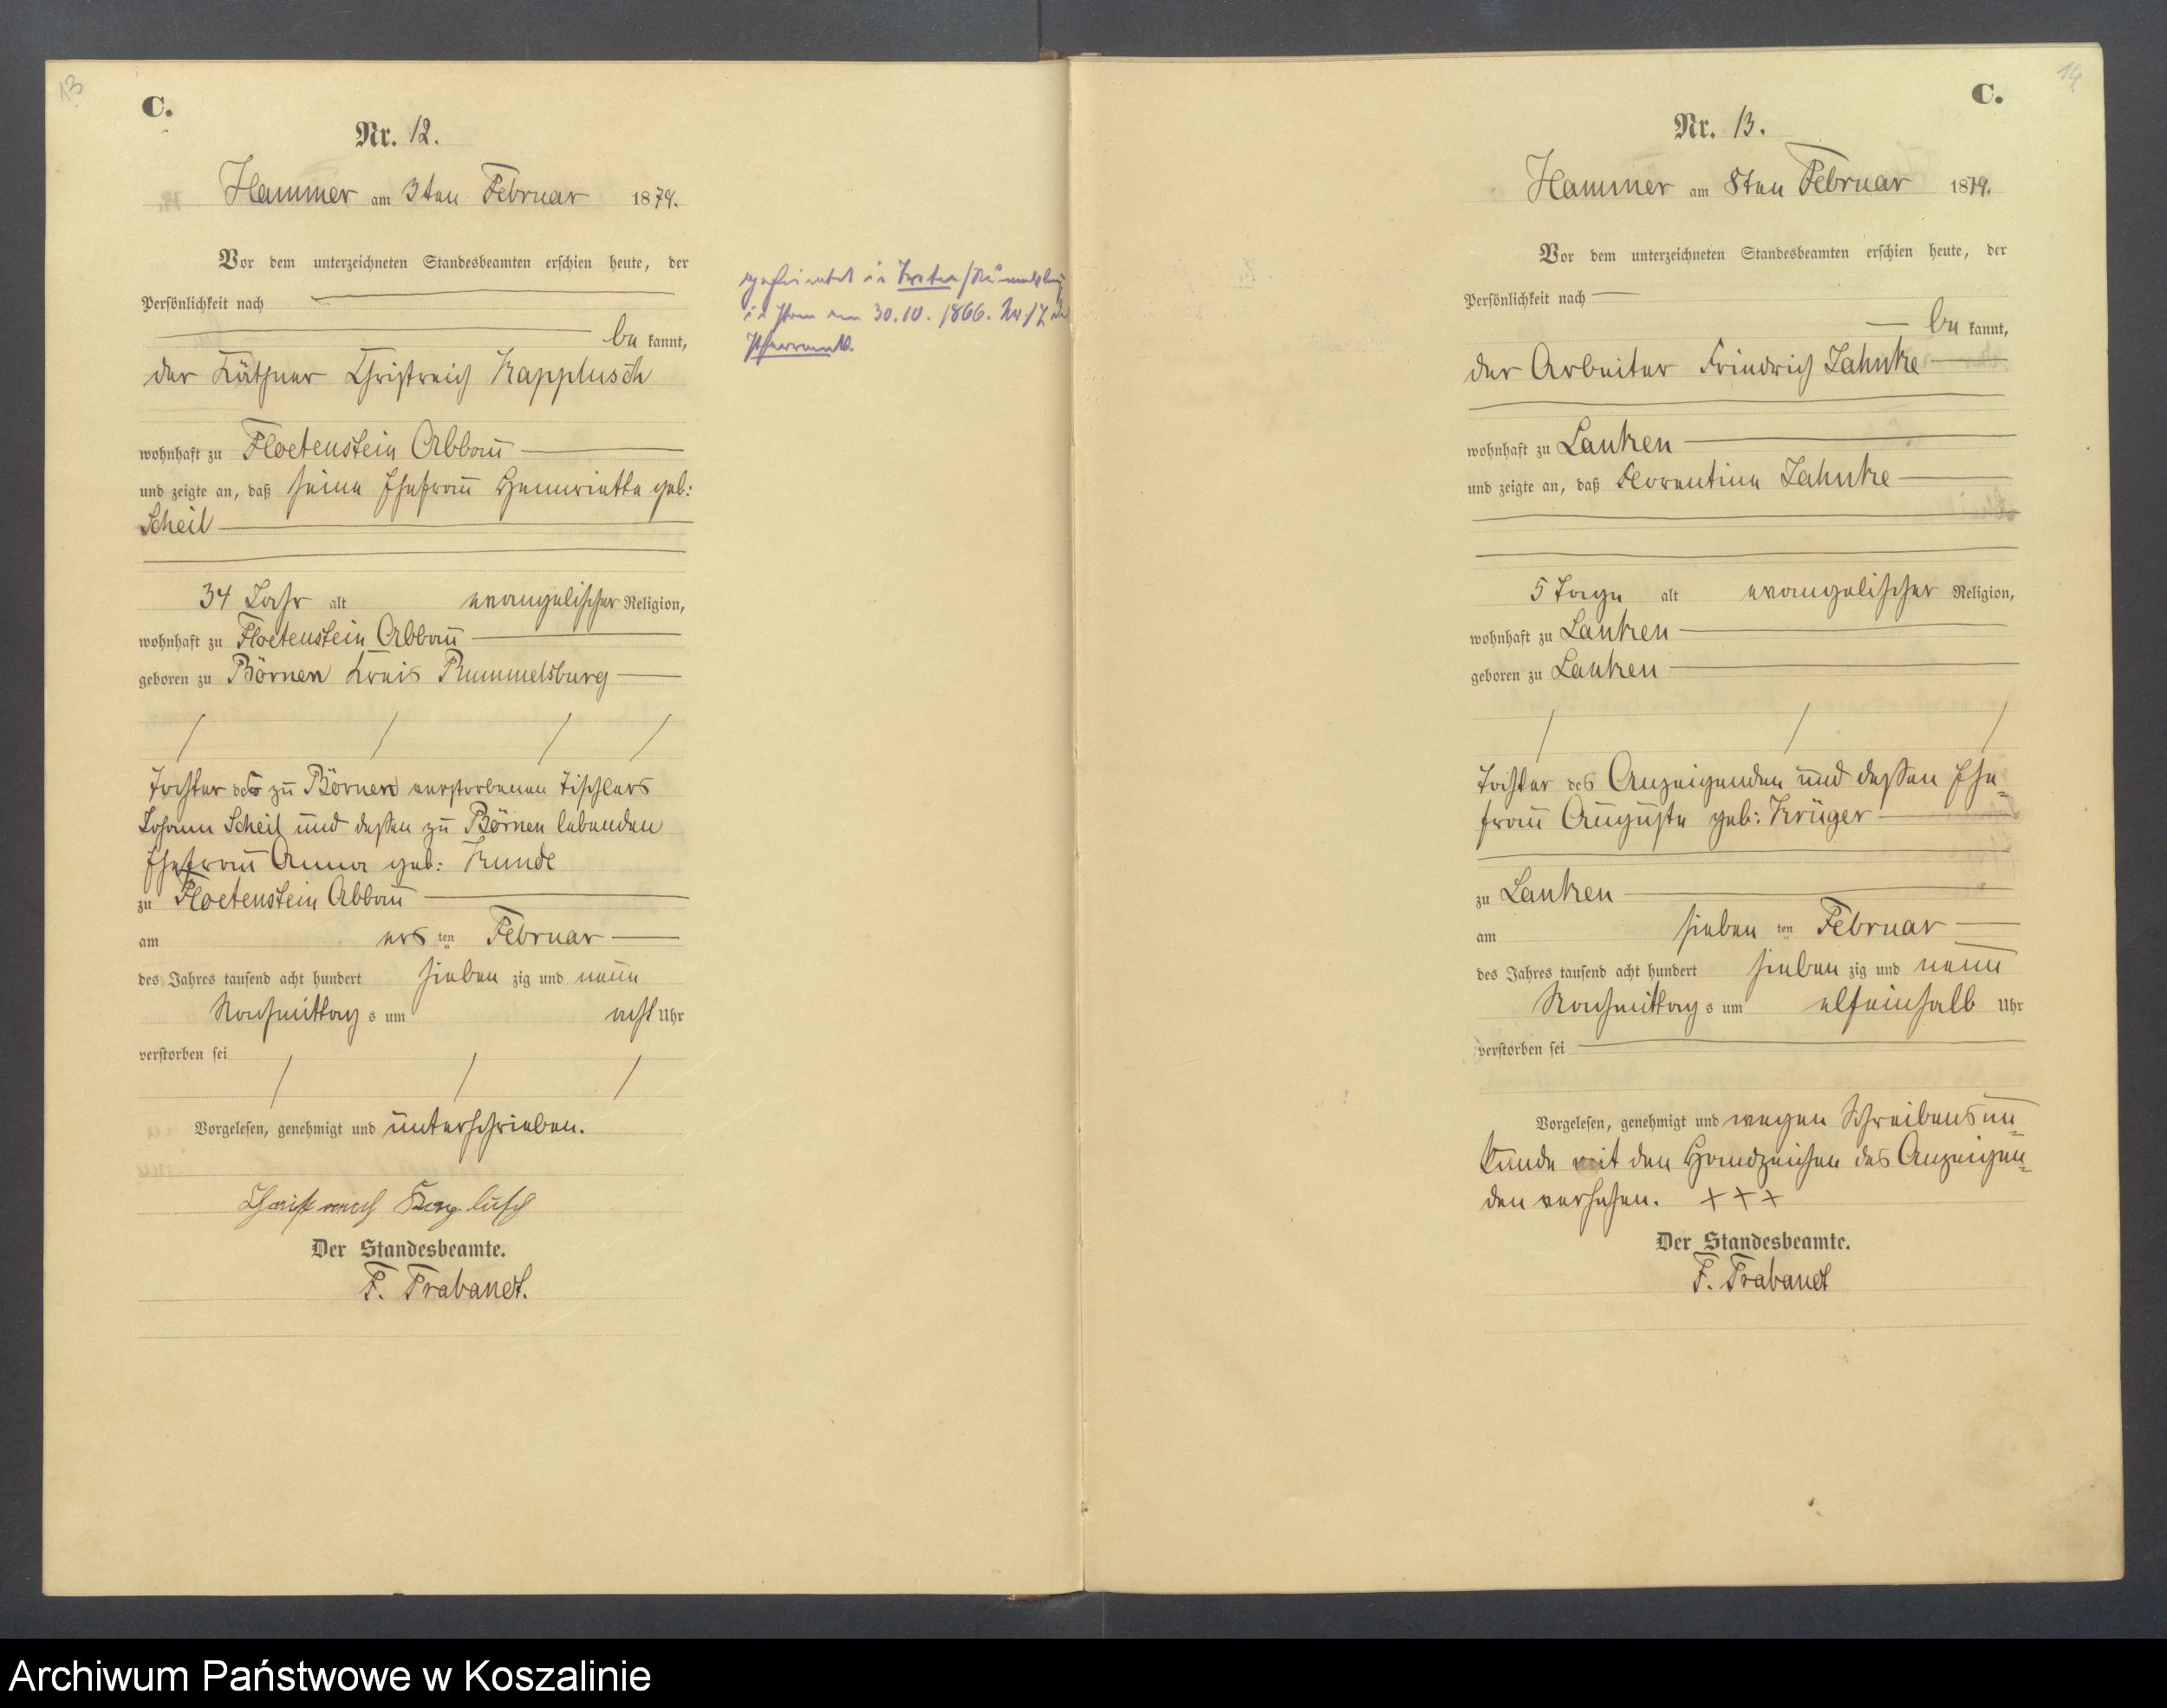 13
C.
Nr. 12.
Hammer am 3ten Februar 1879.
Vor dem unterzeichneten Standesbeamten erschien heute, der
Persönlichkeit nach
be kannt,
der Käthner Christreich Kapplusch
wohnhaft zu Floetenstein Abbau
und zeigte an, daß seine Ehefrau Hennriette geb:
Scheil
34 Jahr alt evangelischer Religion,
wohnhaft zu Floetenstein Abbau
geboren zu Börnen Kreis Rummelsburg
Tochter des zu Börnen verstorbenen Tischlers
Johann Scheil und deßen zu Börnen lebenden
Ehefrau Anna geb: Kunde
zu Floetenstein Abbau
am ers ten Februar
des Jahres tausend acht hundert sieben zig und neun
Nachmittag s um acht Uhr
verstorben sei
Vorgelesen, genehmigt und unterschrieben.
Christreich Kapplusch
Der Standesbeamte.
F. Trabandt.
geheiratet in Treten/Rummelsburg
in Pom am 30.10.1866. Nr. 17 des
Pfarramts.
14
C.
Nr. 13.
Hammer am 8ten Februar 1879.
Vor dem unterzeichneten Standesbeamten erschien heute, der
Persönlichkeit nach
be kannt,
der Arbeiter Friedrich Jahnke
wohnhaft zu Lanken
und zeigte an, daß Florentine Jahnke
5 Tage alt evangelischer Religion,
wohnhaft zu Lanken
geboren zu Lanken
Tochter des Anzeigenden und deßen Ehe=
frau Auguste geb: Krüger
zu Lanken
am sieben ten Februar
des Jahres tausend acht hundert sieben zig und neun
Nachmittag s um elfeinhalb Uhr
verstorben sei
Vorgelesen, genehmigt und wegen Schreibensun=
kunde mit den Handzeichen des Anzeigen=
den versehen. + + +
Der Standesbeamte.
F. Trabandt
Archiwum Państwowe w Koszalinie